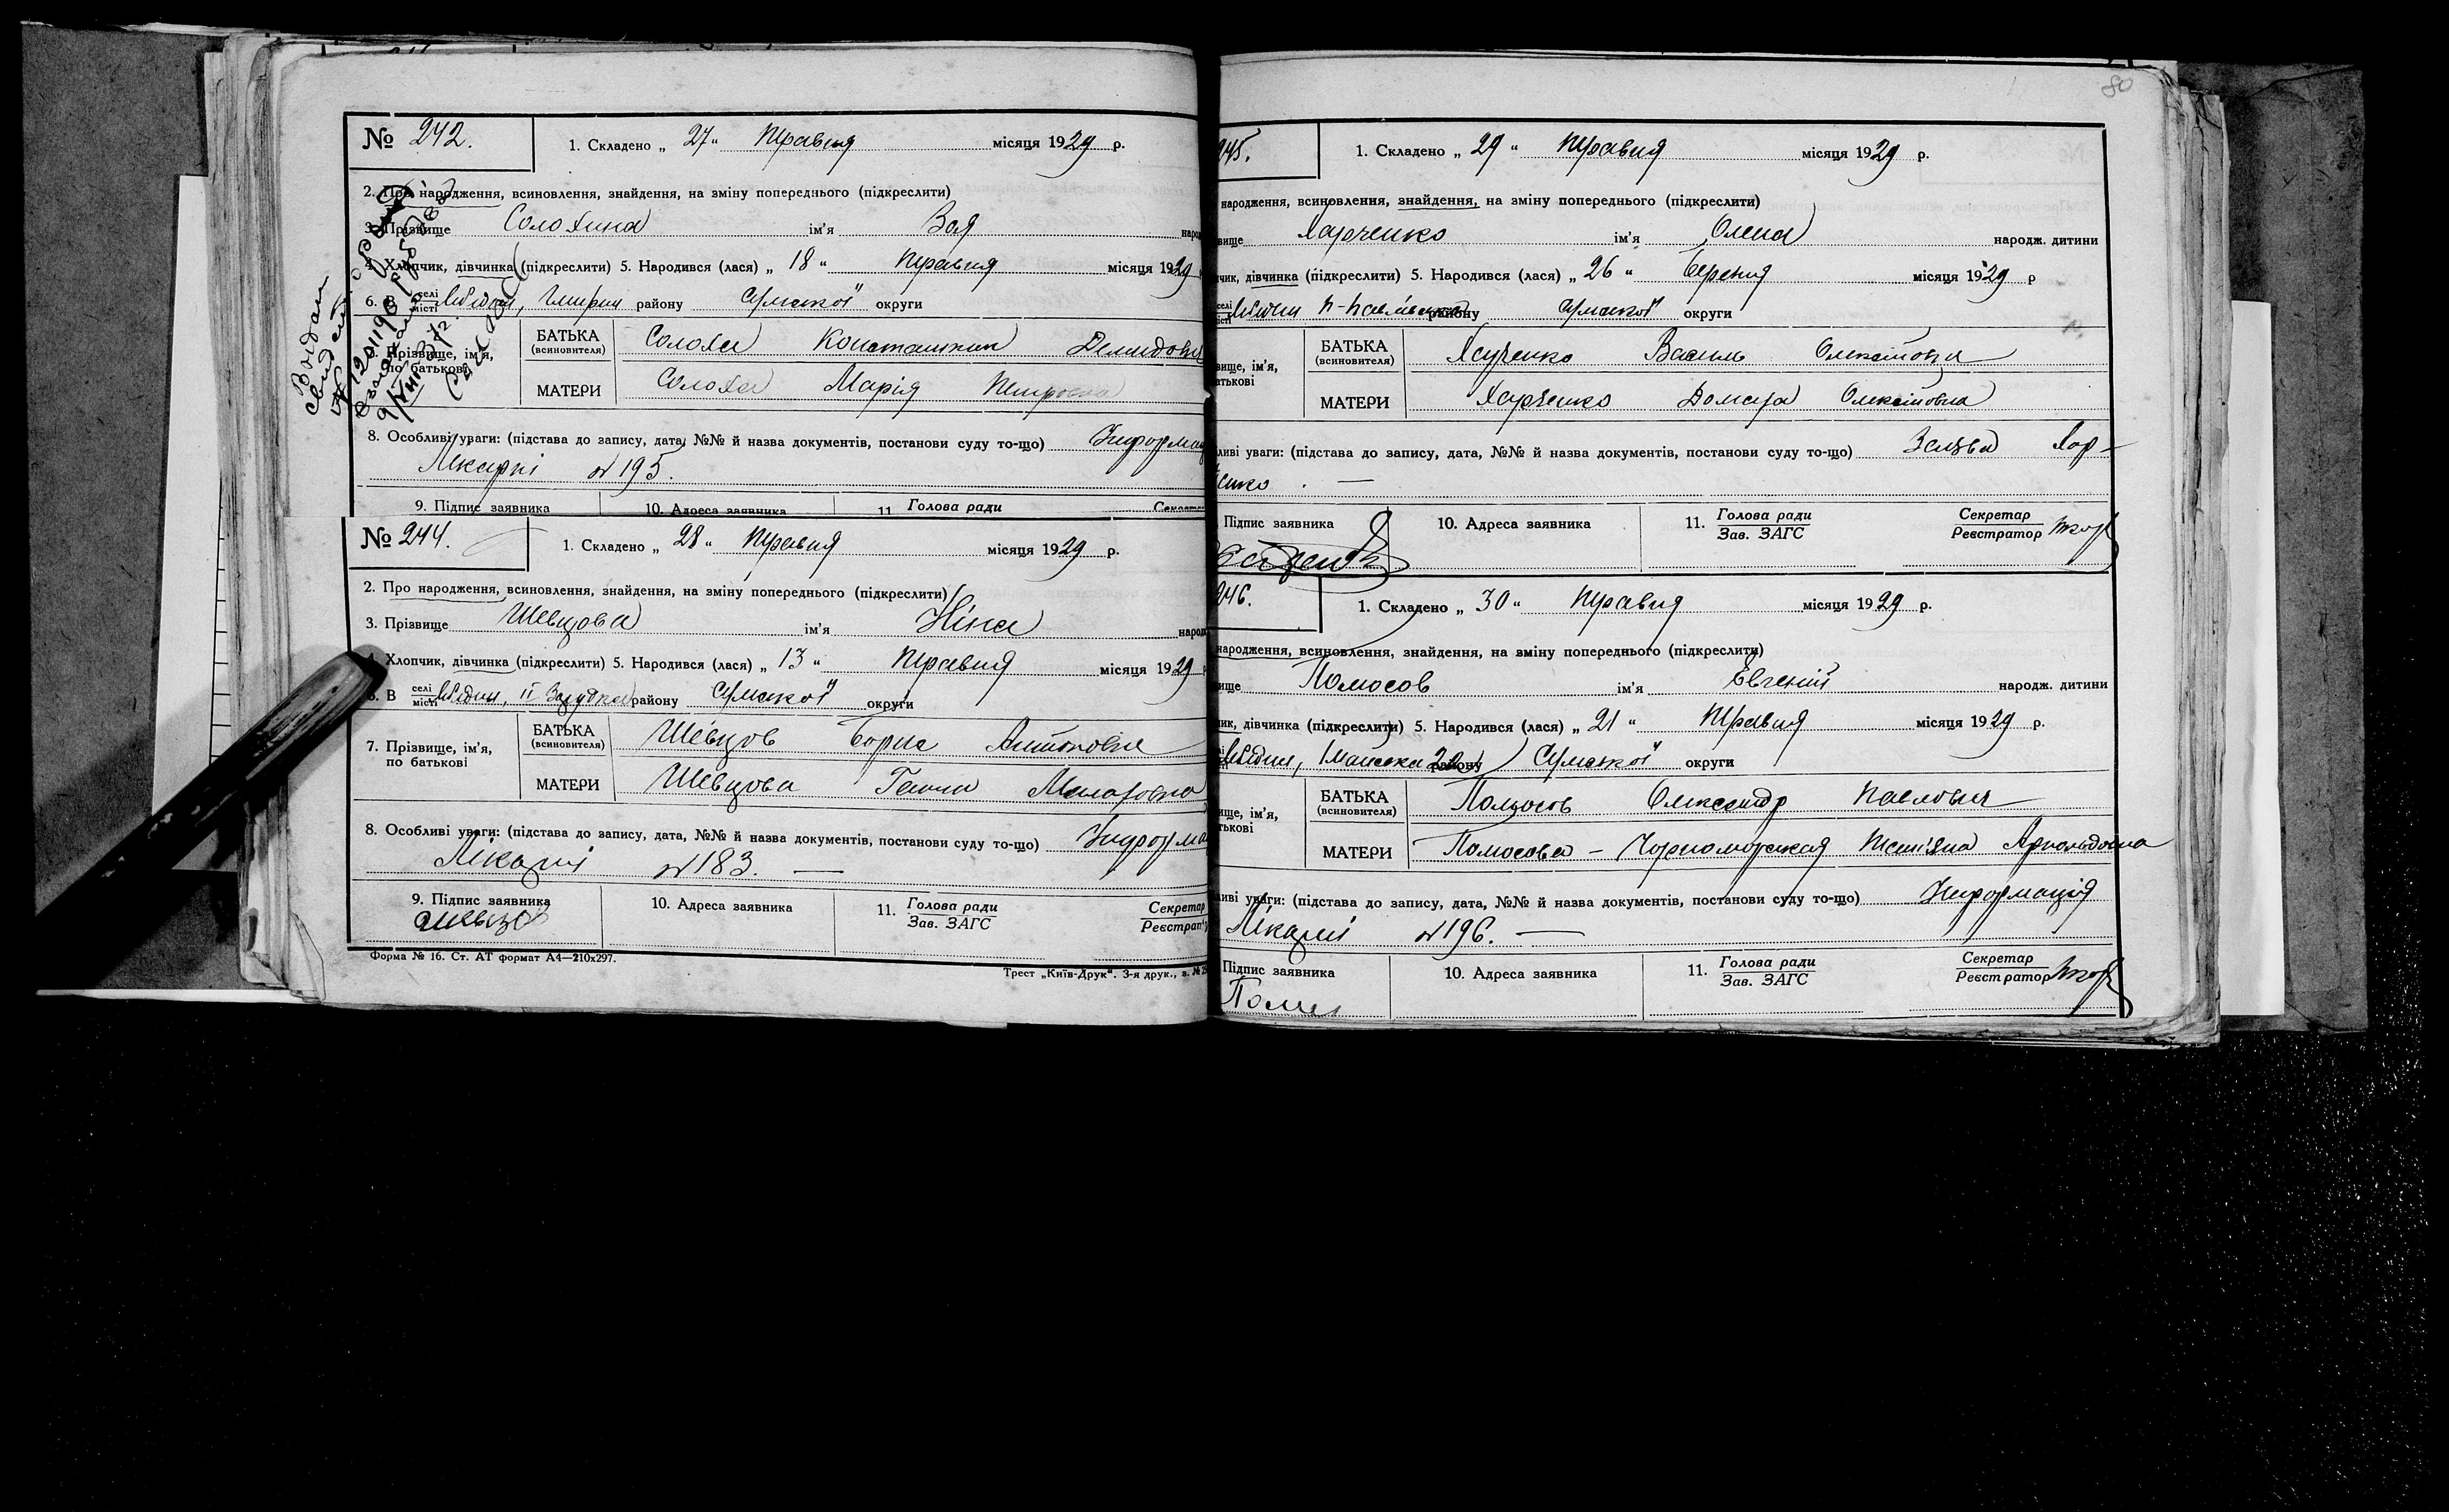 № 242.
1. Складено „ 27 “ Травня місяця 1929 р.
2. Про народження, всиновлення, знайдення, на зміну попереднього (підкреслити)
3. Прізвище Солохина ім'я Зоя народ
4. Хлопчик, дівчинка (підкреслити) 5. Народився (лася) „ 18 “ Травня місяця 1929
6. В селі місті Лебедин, району Сумської округи
7. Прізвище, ім'я, по батькові
БАТЬКА (всиновителя) Солоха Константин Демидович
МАТЕРИ Солоха Марія Петровна
8. Особливі уваги: (підстава до запису, дата, №№ й назва документів, постанови суду то-що) Информац
Лікарні № 195.
9. Підпис заявника 10. Адреса заявника 11. Голова ради Секретар
№ 244.
1. Складено „ 28 “ Травня місяця 1929 р.
2. Про народження, всиновлення, знайдення, на зміну попереднього (підкреслити)
3. Прізвище Шевцова ім'я Ніна народ
4. Хлопчик, дівчинка (підкреслити) 5. Народився (лася) „ 13 “ Травня місяця 1929 р
6. В селі місті Лебедин, II району Сумської округи
7. Прізвище, ім'я, по батькові
БАТЬКА (всиновителя) Шевцов Борис Антонович
МАТЕРИ Шевцова Ганна
8. Особливі уваги: (підстава до запису, дата, №№ й назва документів, постанови суду то-що) Информа
Лікарні № 183. —
9. Підпис заявника 10. Адреса заявника 11. Голова ради Зав. ЗАГС Секретар Реєстрат
Шевцов
Форма № 16. Ст. АТ формат А4—210х297.
Трест „Київ-Друк“. 3-я друк., з. №
80
245.
1. Складено „ 29 “ Травня місяця 1929 р.
народження, всиновлення, знайдення, на зміну попереднього (підкреслити)
вище Харченко ім'я Олена народж. дитини
чик, дівчинка (підкреслити) 5. Народився (лася) „ 26 “ Березня місяця 1929 р
селі місті Лебедин району Сумської округи
вище, ім'я, атькові
БАТЬКА (всиновителя) Харченко Василь Олексійович
МАТЕРИ Харченко Домаха Олексіївна
ливі уваги: (підстава до запису, дата, №№ й назва документів, постанови суду то-що) Заява Хар-
ченко . —
Підпис заявника 10. Адреса заявника 11. Голова ради Зав. ЗАГС Секретар Реєстратор
246.
1. Складено „ 30 “ Травня місяця 1929 р.
народження, всиновлення, знайдення, на зміну попереднього (підкреслити)
ище Помосов ім'я Евгеній народж. дитини
чик, дівчинка (підкреслити) 5. Народився (лася) „ 21 “ Травня місяця 1929 р.
Лебедин, району Сумської округи
ище, ім'я, тькові
БАТЬКА (всиновителя) Помосов Олександр Павлович
МАТЕРИ Помосова — Чорноморская Тетіяна Арнольдовна
ливі уваги: (підстава до запису, дата, №№ й назва документів, постанови суду то-що) Информація
Лікарні № 196. —
Підпис заявника 10. Адреса заявника 11. Голова ради Зав. ЗАГС Секретар Реєстратор